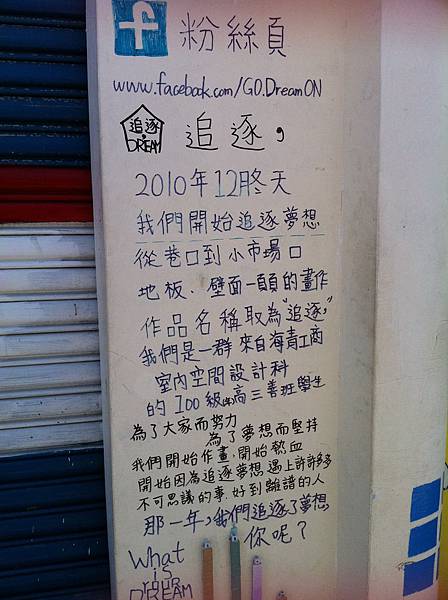 f 粉絲頁
www.facebook.com/GO.DreamON
追逐
DREAM
追逐,
2010年12月冬天
我們開始追逐夢想
從巷口到小市場口
地板、壁面一頭的畫作
作品名稱取為"追逐,"
我們是一群來自海青工商
室內空間設計科
的100級高三善班學生
為了大家而努力
為了夢想而堅持
我們開始作畫,開始熱血
開始因為追逐夢想遇上許許多多
不可思議的事.好到離譜的人
那一年,我們追逐了夢想,
你呢?
What
IS
YOUR
DREAM